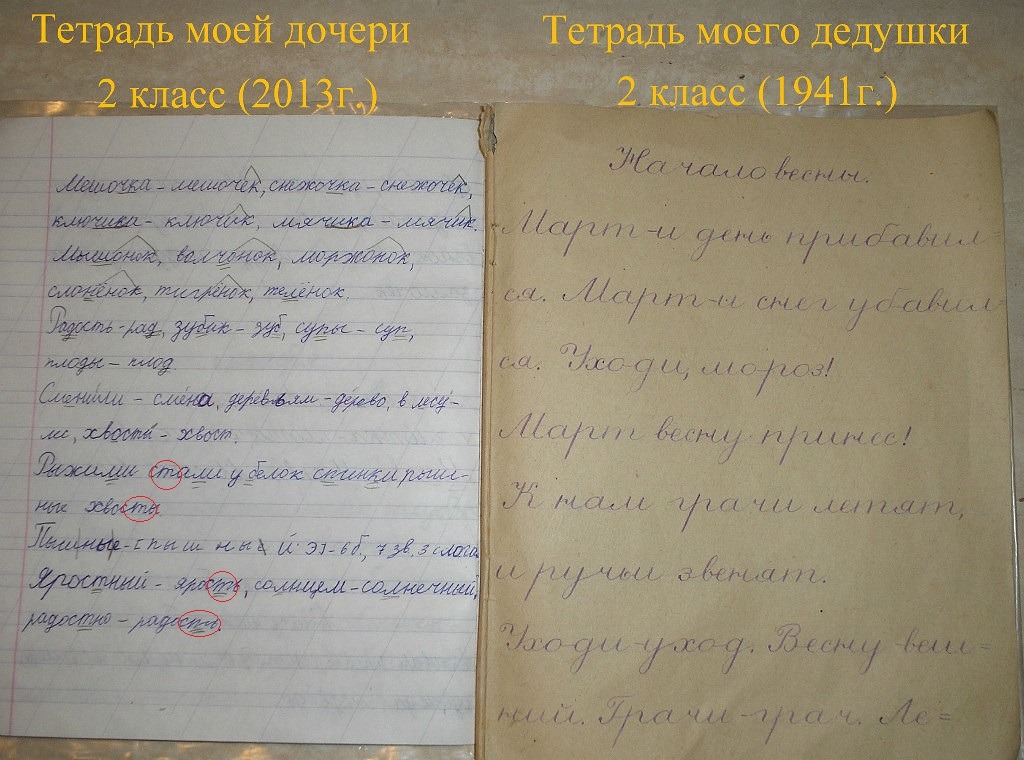 Тетрадь моей дочери
2 класс (2013г.)
Мешочка - мешочек, снежочка - снежочек,
ключика - ключик, мячика - мячик.
Мышонок, волчонок, моржонок,
слонёнок, тигрёнок, телёнок.
Радость - рад, зубик - зуб, супы - суп,
плоды - плод.
Сменили - смена, деревьям - дерево, в лесу -
лес, хвосты - хвост.
Рыжими стали у белок спинки пыш-
ные хвосты.
Пышные - [пышный' э] - 6 б, 7 зв. 3 слога
Яростный - ярость, солнцем - солнечный,
радостно - радость.
Тетрадь моего дедушки
2 класс (1941г.)
Начало весны.
Март-и день прибавил=
ся. Март-и снег убавил=
ся. Уходи, мороз!
Март весну принес!
К нам грачи летят,
и ручьи звенят.
Уходи-уход. Весну-весен=
ний. Грачи-грач. Ле=